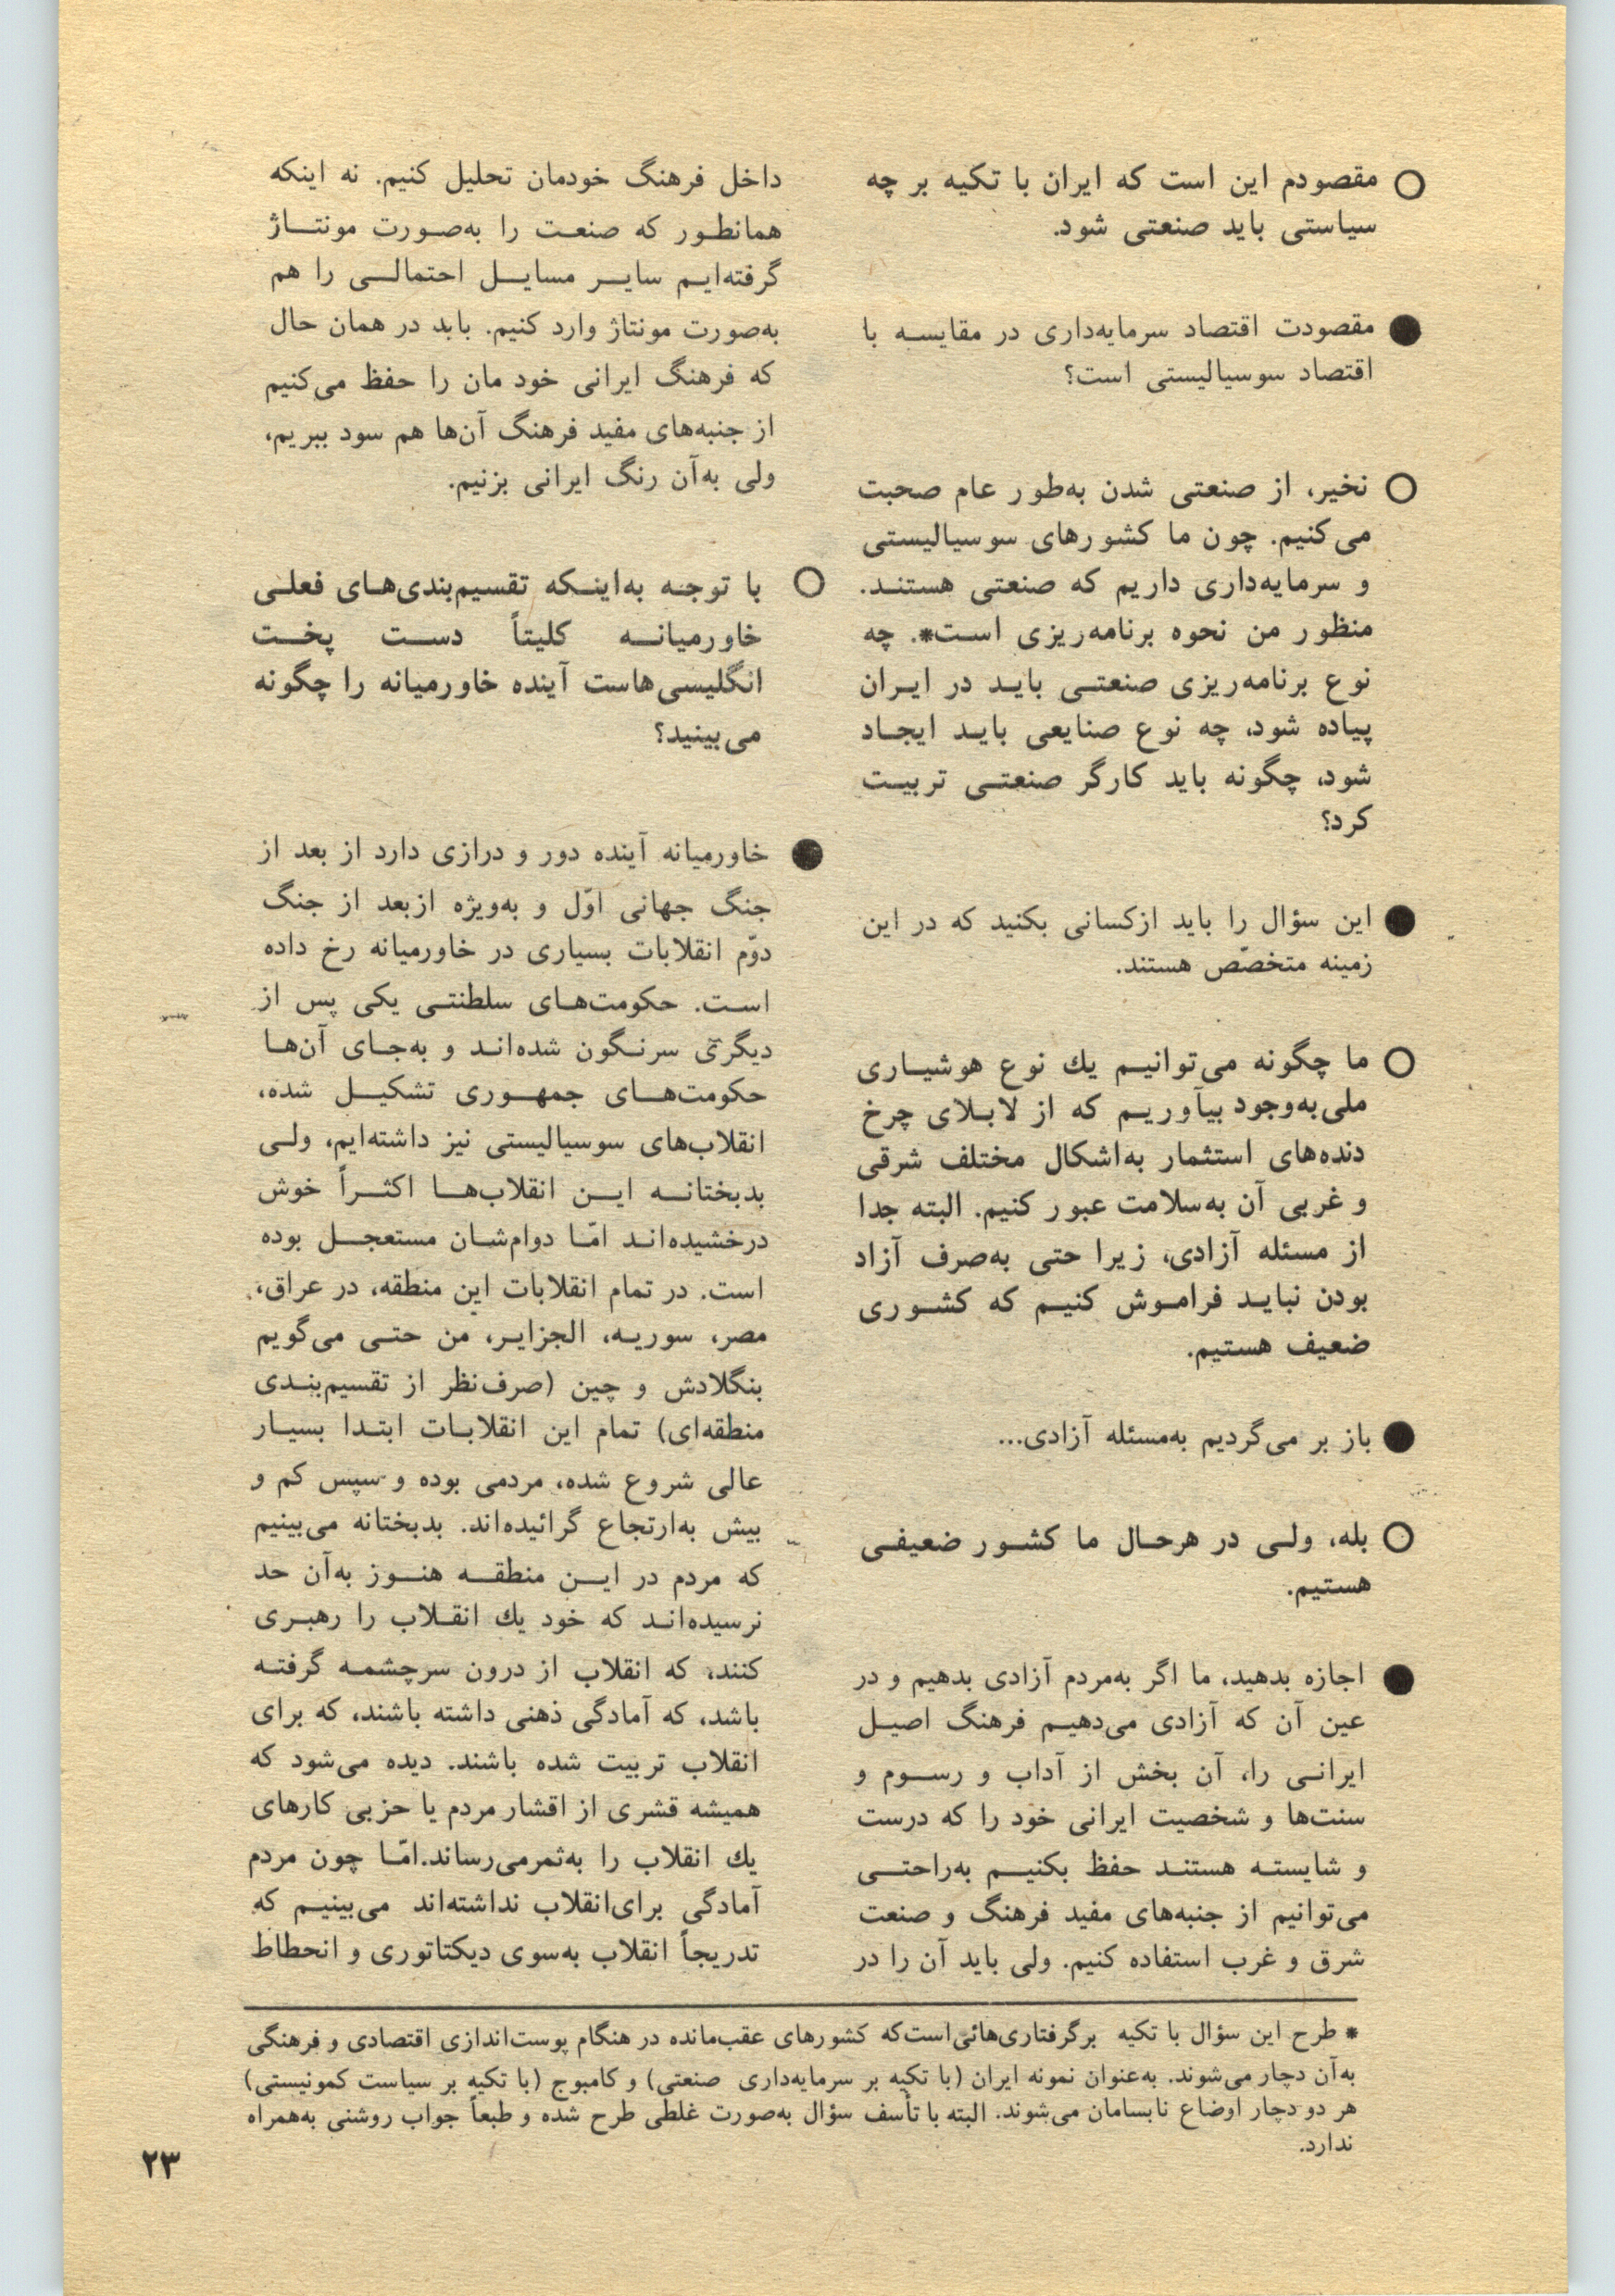 ○ مقصودم این است که ایران با تکیه بر چه
سیاستی باید صنعتی شود.
● مقصودت اقتصاد سرمایه‌داری در مقایسه با
اقتصاد سوسیالیستی است؟
○ نخیر، از صنعتی شدن به‌طور عام صحبت
می‌کنیم. چون ما کشورهای سوسیالیستی
و سرمایه‌داری داریم که صنعتی هستند.
منظور من نحوه برنامه‌ریزی است*. چه
نوع برنامه‌ریزی صنعتی باید در ایران
پیاده شود، چه نوع صنایعی باید ایجاد
شود، چگونه باید کارگر صنعتی تربیت
کرد؟
● این سؤال را باید ازکسانی بکنید که در این
زمینه متخصّص هستند.
○ ما چگونه می‌توانیم یك نوع هوشیاری
ملی به‌وجود بیآوریم که از لابلای چرخ
دنده‌های استثمار به‌اشکال مختلف شرقی
و غربی آن به‌سلامت عبور کنیم. البته جدا
از مسئله آزادی، زیرا حتی به‌صرف آزاد
بودن نباید فراموش کنیم که کشوری
ضعیف هستیم.
● باز بر می‌گردیم به‌مسئله آزادی...
○ بله، ولی در هرحال ما کشور ضعیفی
هستیم.
● اجازه بدهید، ما اگر به‌مردم آزادی بدهیم و در
عین آن که آزادی می‌دهیم فرهنگ اصیل
ایرانی را، آن بخش از آداب و رسوم و
سنت‌ها و شخصیت ایرانی خود را که درست
و شایسته هستند حفظ بکنیم به‌راحتی
می‌توانیم از جنبه‌های مفید فرهنگ و صنعت
شرق و غرب استفاده کنیم. ولی باید آن را در
داخل فرهنگ خودمان تحلیل کنیم. نه اینکه
همانطور که صنعت را به‌صورت مونتاژ
گرفته‌ایم سایر مسایل احتمالی را هم
به‌صورت مونتاژ وارد کنیم. باید در همان حال
که فرهنگ ایرانی خود مان را حفظ می‌کنیم
از جنبه‌های مفید فرهنگ آن‌ها هم سود ببریم،
ولی به‌آن رنگ ایرانی بزنیم.
○ با توجه به‌اینکه تقسیم‌بندی‌های فعلی
خاورمیانه کلیتاً دست پخت
انگلیسی‌هاست آینده خاورمیانه را چگونه
می‌بینید؟
● خاورمیانه آینده دور و درازی دارد از بعد از
جنگ جهانی اوّل و به‌ویژه ازبعد از جنگ
دوّم انقلابات بسیاری در خاورمیانه رخ داده
است. حکومت‌های سلطنتی یکی پس از
دیگری سرنگون شده‌اند و به‌جای آن‌ها
حکومت‌های جمهوری تشکیل شده،
انقلاب‌های سوسیالیستی نیز داشته‌ایم، ولی
بدبختانه این انقلاب‌ها اکثراً خوش
درخشیده‌اند امّا دوام‌شان مستعجل بوده
است. در تمام انقلابات این منطقه، در عراق،
مصر، سوریه، الجزایر، من حتی می‌گویم
بنگلادش و چین (صرف‌نظر از تقسیم‌بندی
منطقه‌ای) تمام این انقلابات ابتدا بسیار
عالی شروع شده، مردمی بوده و سپس کم و
بیش به‌ارتجاع گرائیده‌اند. بدبختانه می‌بینیم
که مردم در این منطقه هنوز به‌آن حد
نرسیده‌اند که خود یك انقلاب را رهبری
کنند، که انقلاب از درون سرچشمه گرفته
باشد، که آمادگی ذهنی داشته باشند، که برای
انقلاب تربیت شده باشند. دیده می‌شود که
همیشه قشری از اقشار مردم یا حزبی کارهای
یك انقلاب را به‌ثمرمی‌رساند.امّا چون مردم
آمادگی برای‌انقلاب نداشته‌اند می‌بینیم که
تدریجاً انقلاب به‌سوی دیکتاتوری و انحطاط
* طرح این سؤال با تکیه برگرفتاری‌هائی‌است‌که کشورهای عقب‌مانده در هنگام پوست‌اندازی اقتصادی و فرهنگی
به‌آن دچار می‌شوند. به‌عنوان نمونه ایران (با تکیه بر سرمایه‌داری صنعتی) و کامبوج (با تکیه بر سیاست کمونیستی)
هر دو دچار اوضاع نابسامان می‌شوند. البته با تأسف سؤال به‌صورت غلطی طرح شده و طبعاً جواب روشنی به‌همراه
ندارد.
۲۳